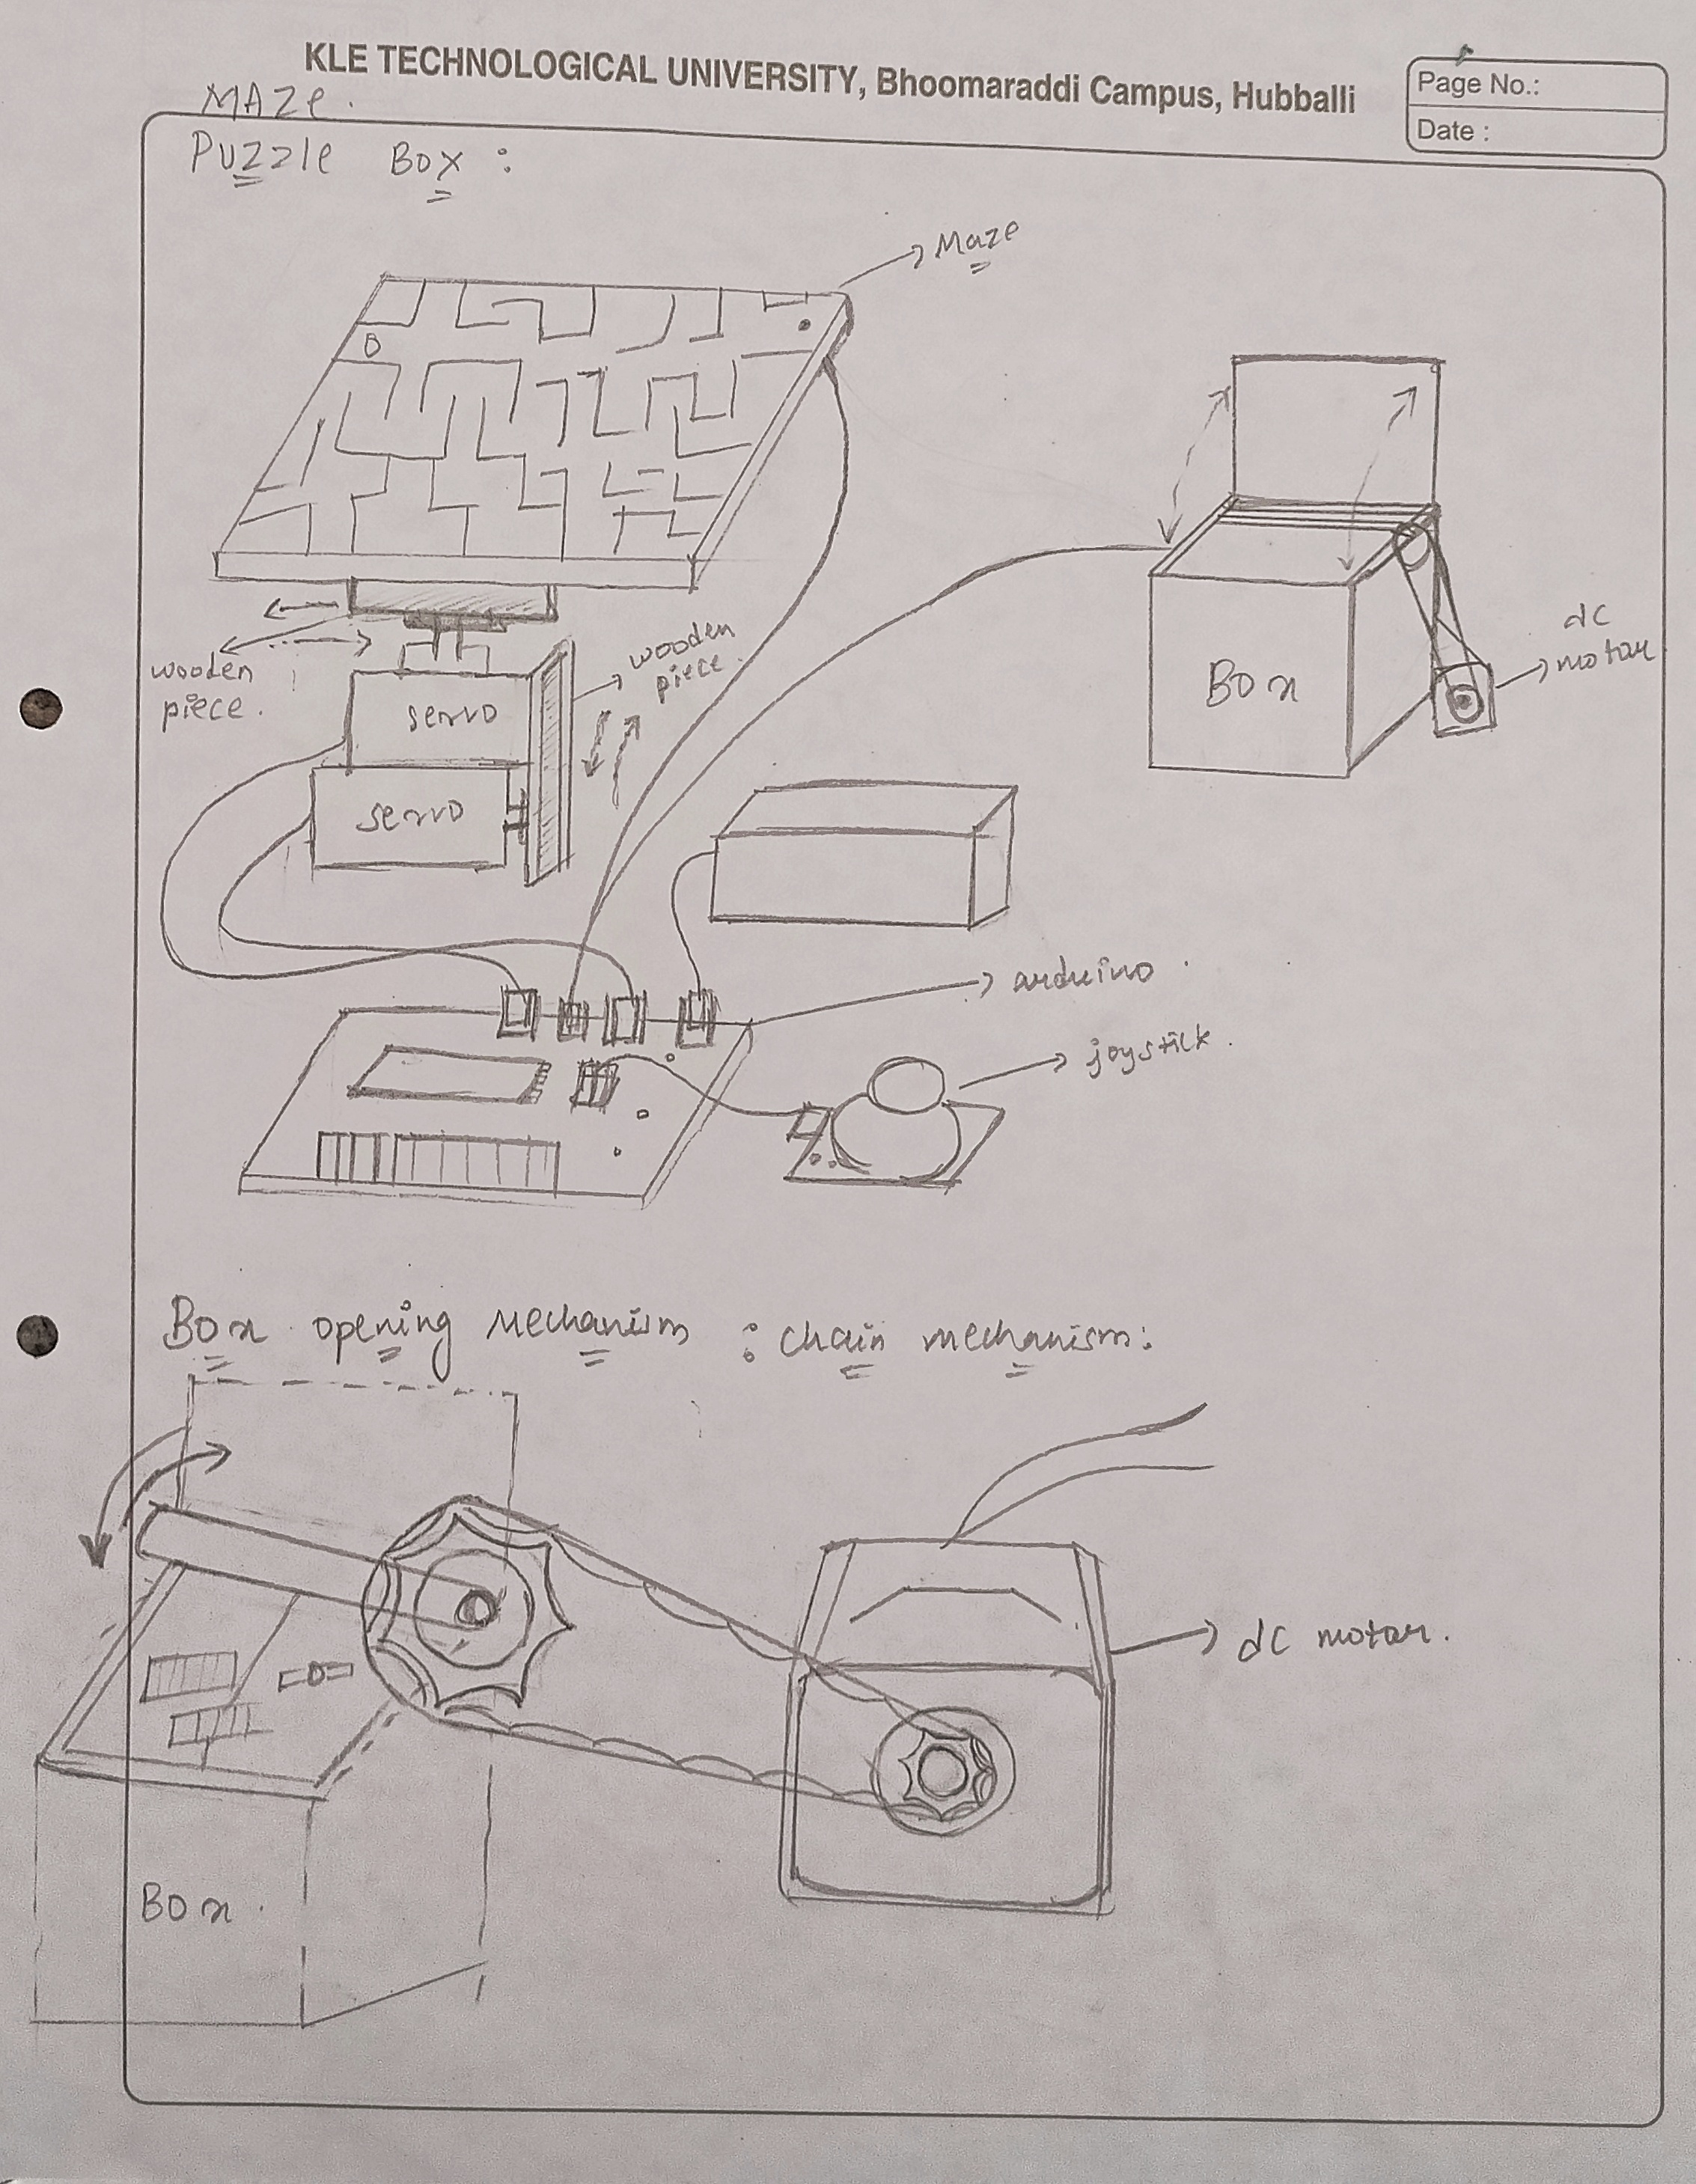 KLE TECHNOLOGICAL UNIVERSITY, Bhoomaraddi Campus, Hubballi
Page No.:
Date :
MAZe.
PUZZle BOX :
Maze
wooden
piece.
wooden
piece.
servo
servo
Box
dc
motor
arduino.
joystick.
Box opening Mechanism : chain mechanism:
dc motor.
Box.